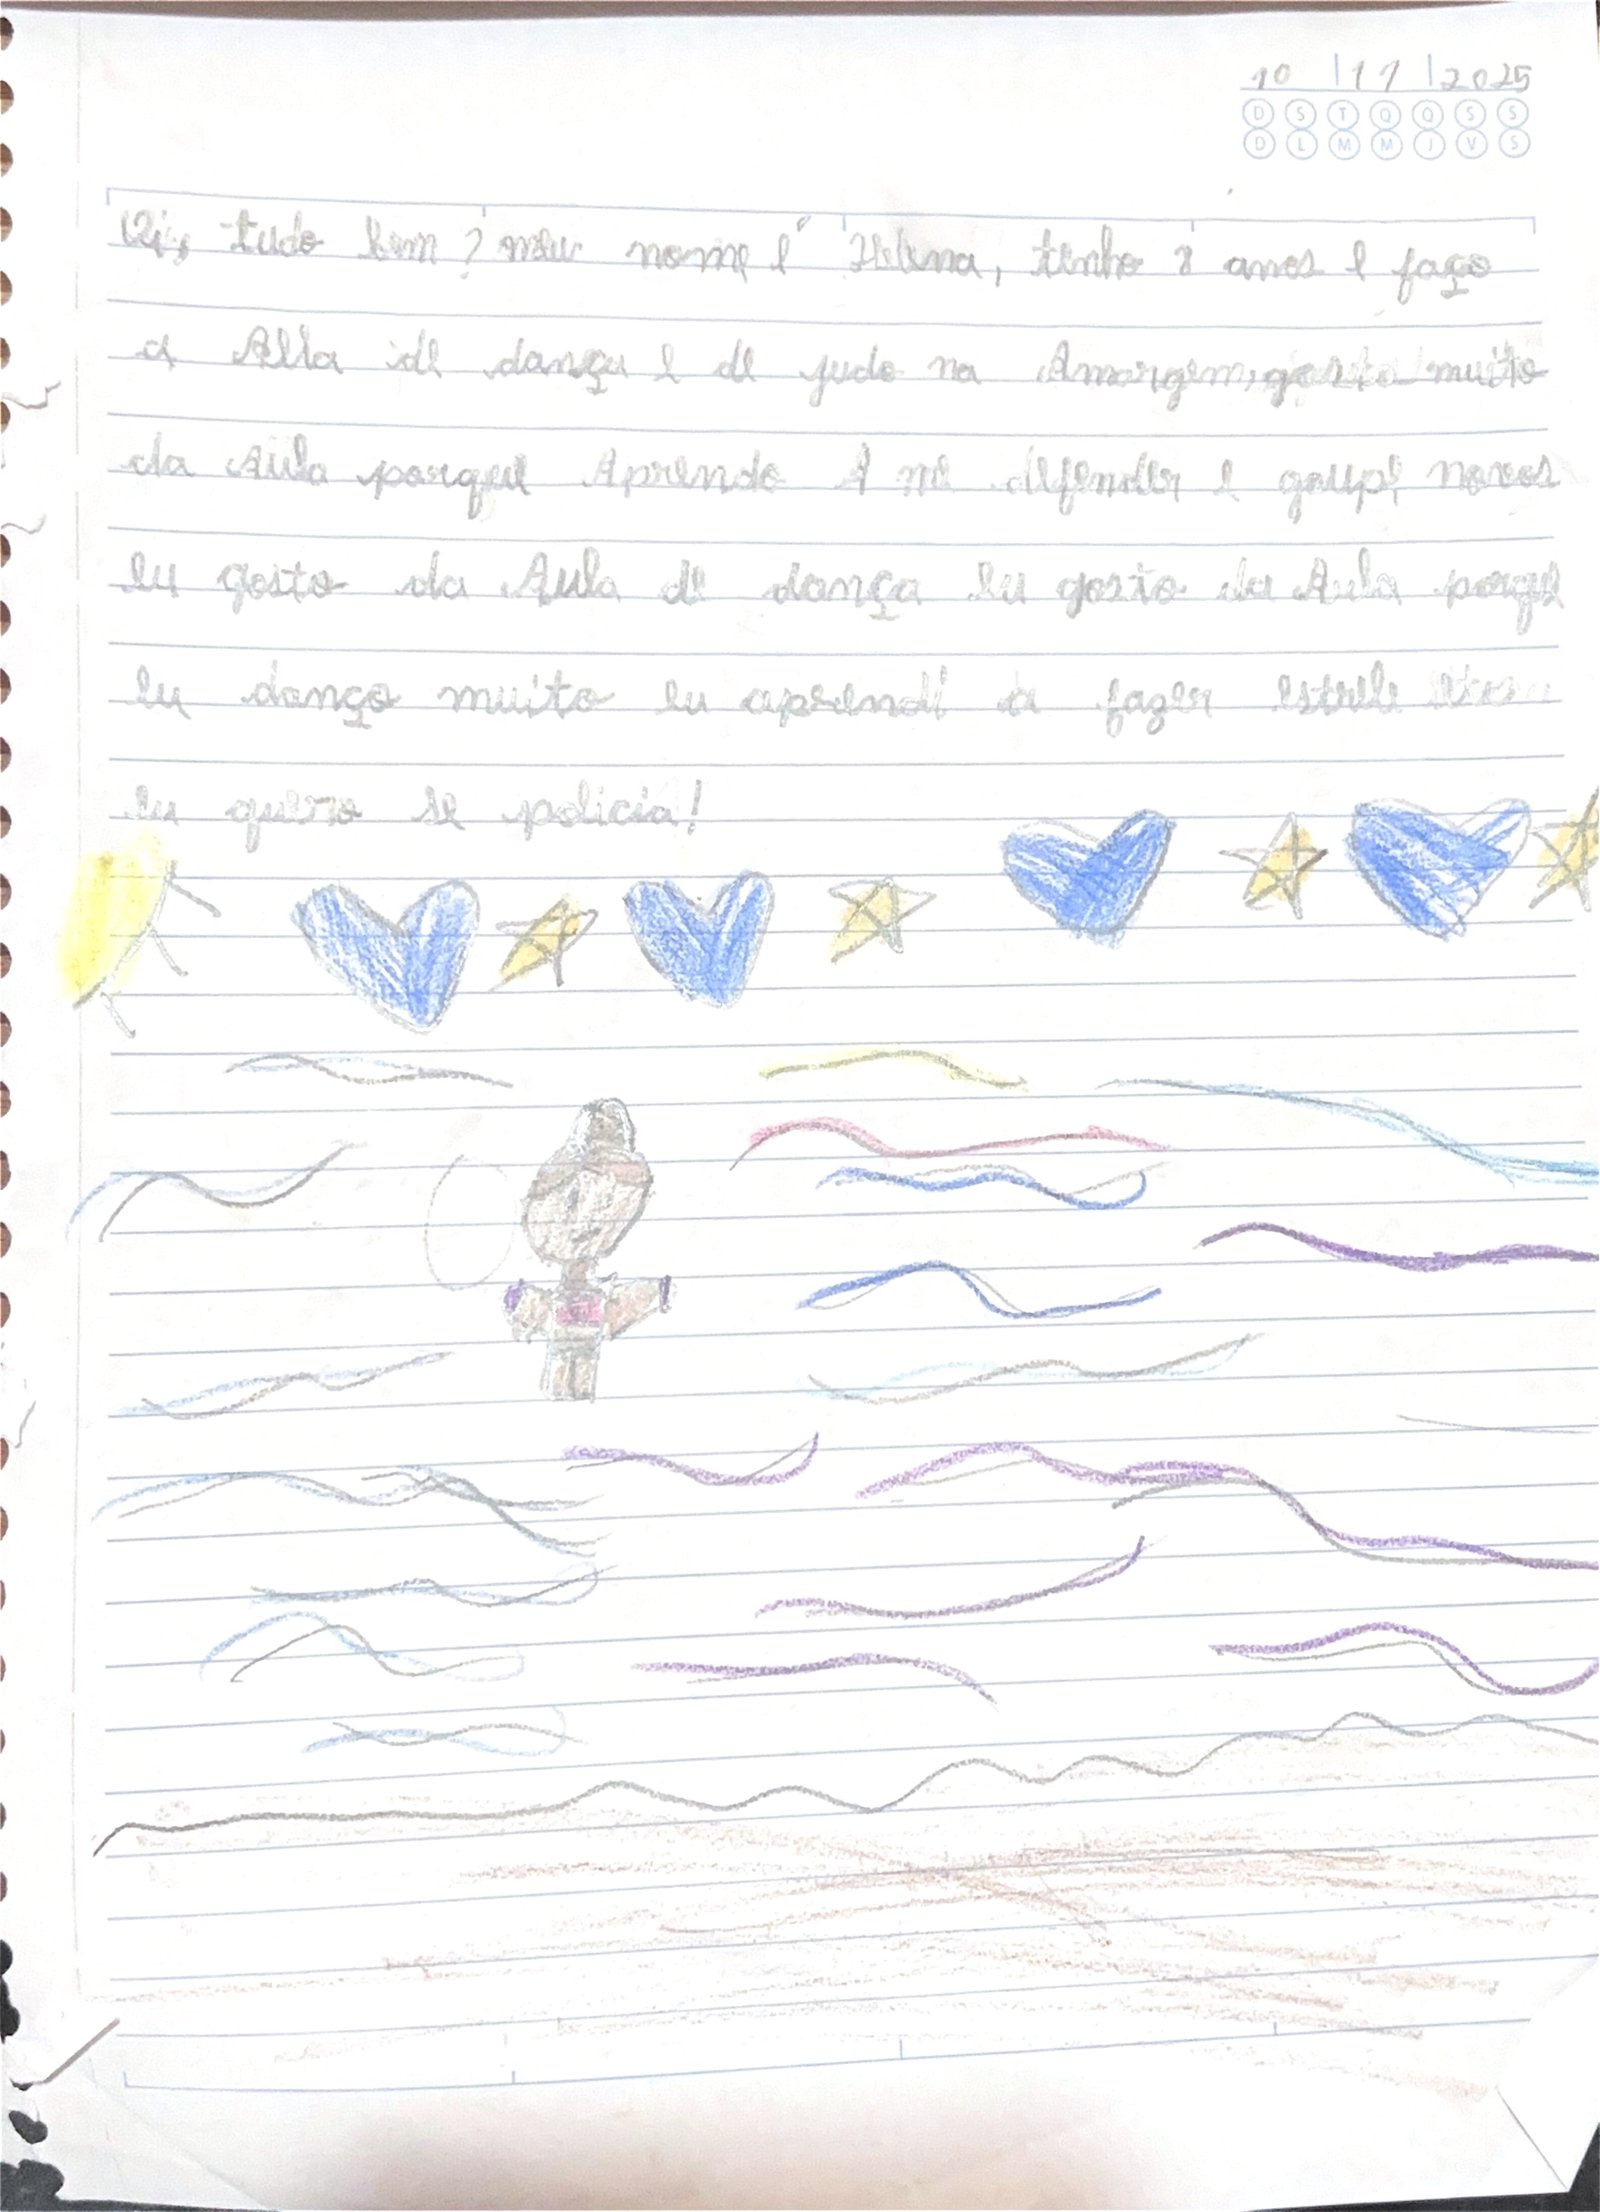 10 | 11 | 2025
D S T Q Q S S
D L M M J V S
Oi, tudo bem? meu nome é Helena, tenho 8 anos e faço
a Alla de dança e de judo na Amargem, gosto muito
da Aula porque Aprendo A me defender e goupe novos
eu gosto da Aula de dança eu gosto da Aula porque
eu danço muito eu aprendi a fazer estrele
eu quero se policia!